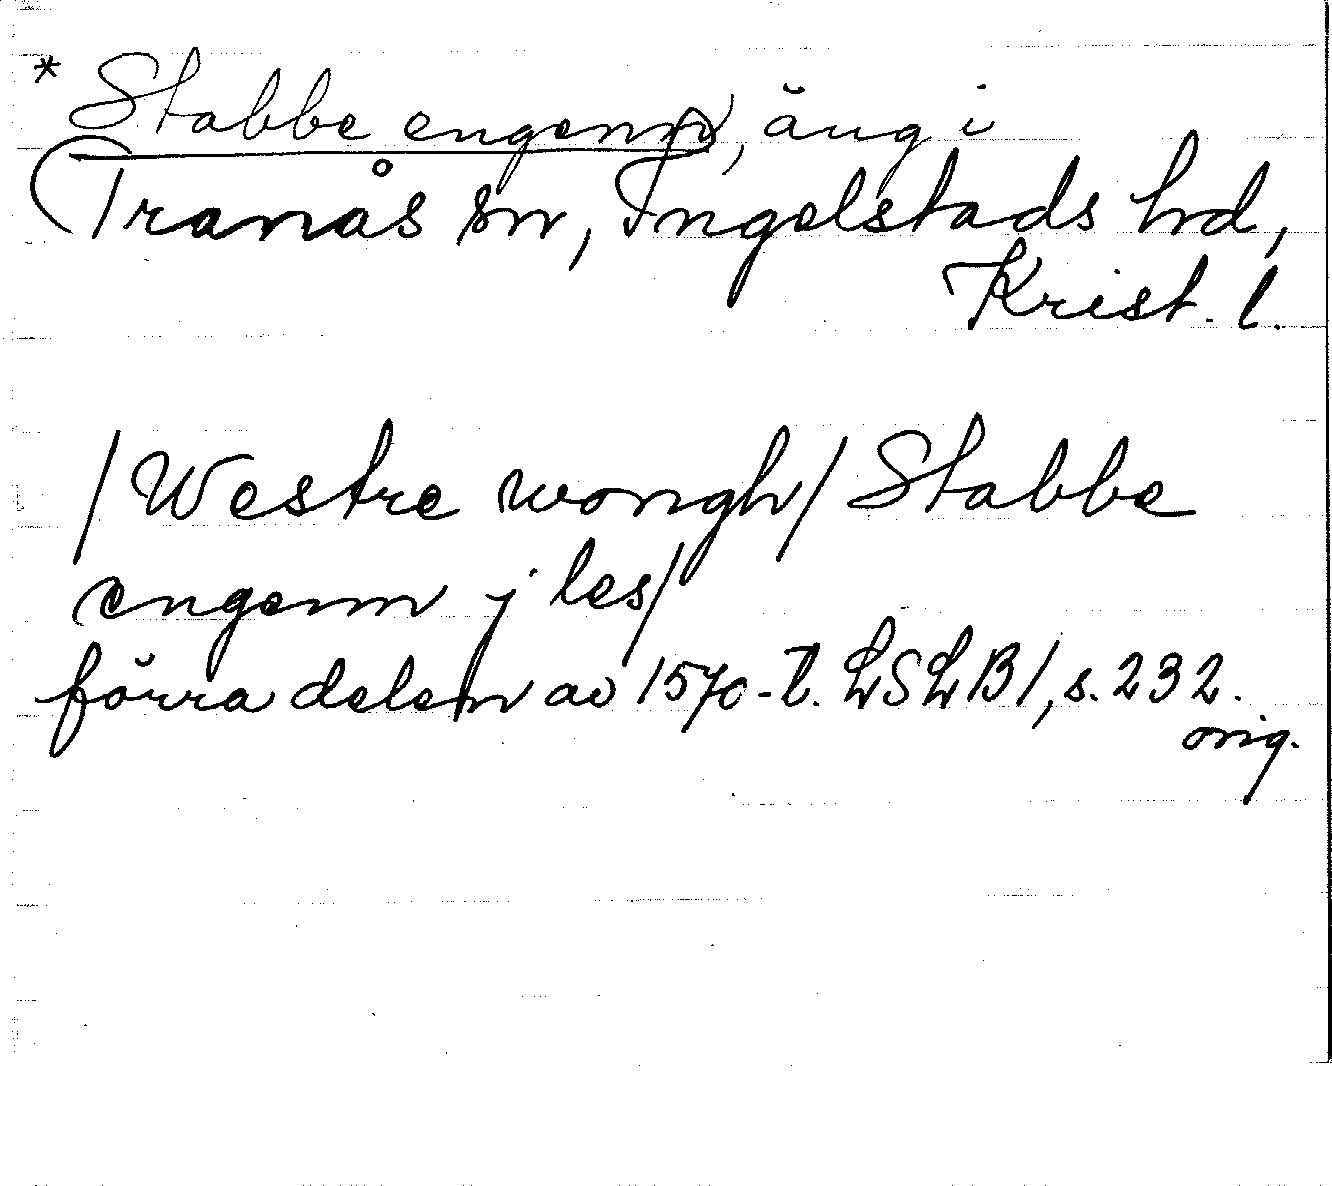 * Stabbe engenn, äng i
Tranås sn, Ingelstads hd,
Krist. l.
/Westre wongh/ Stabbe
engenn j les/
förra delen av 1570-t. LSLB1, s. 232.
orig.